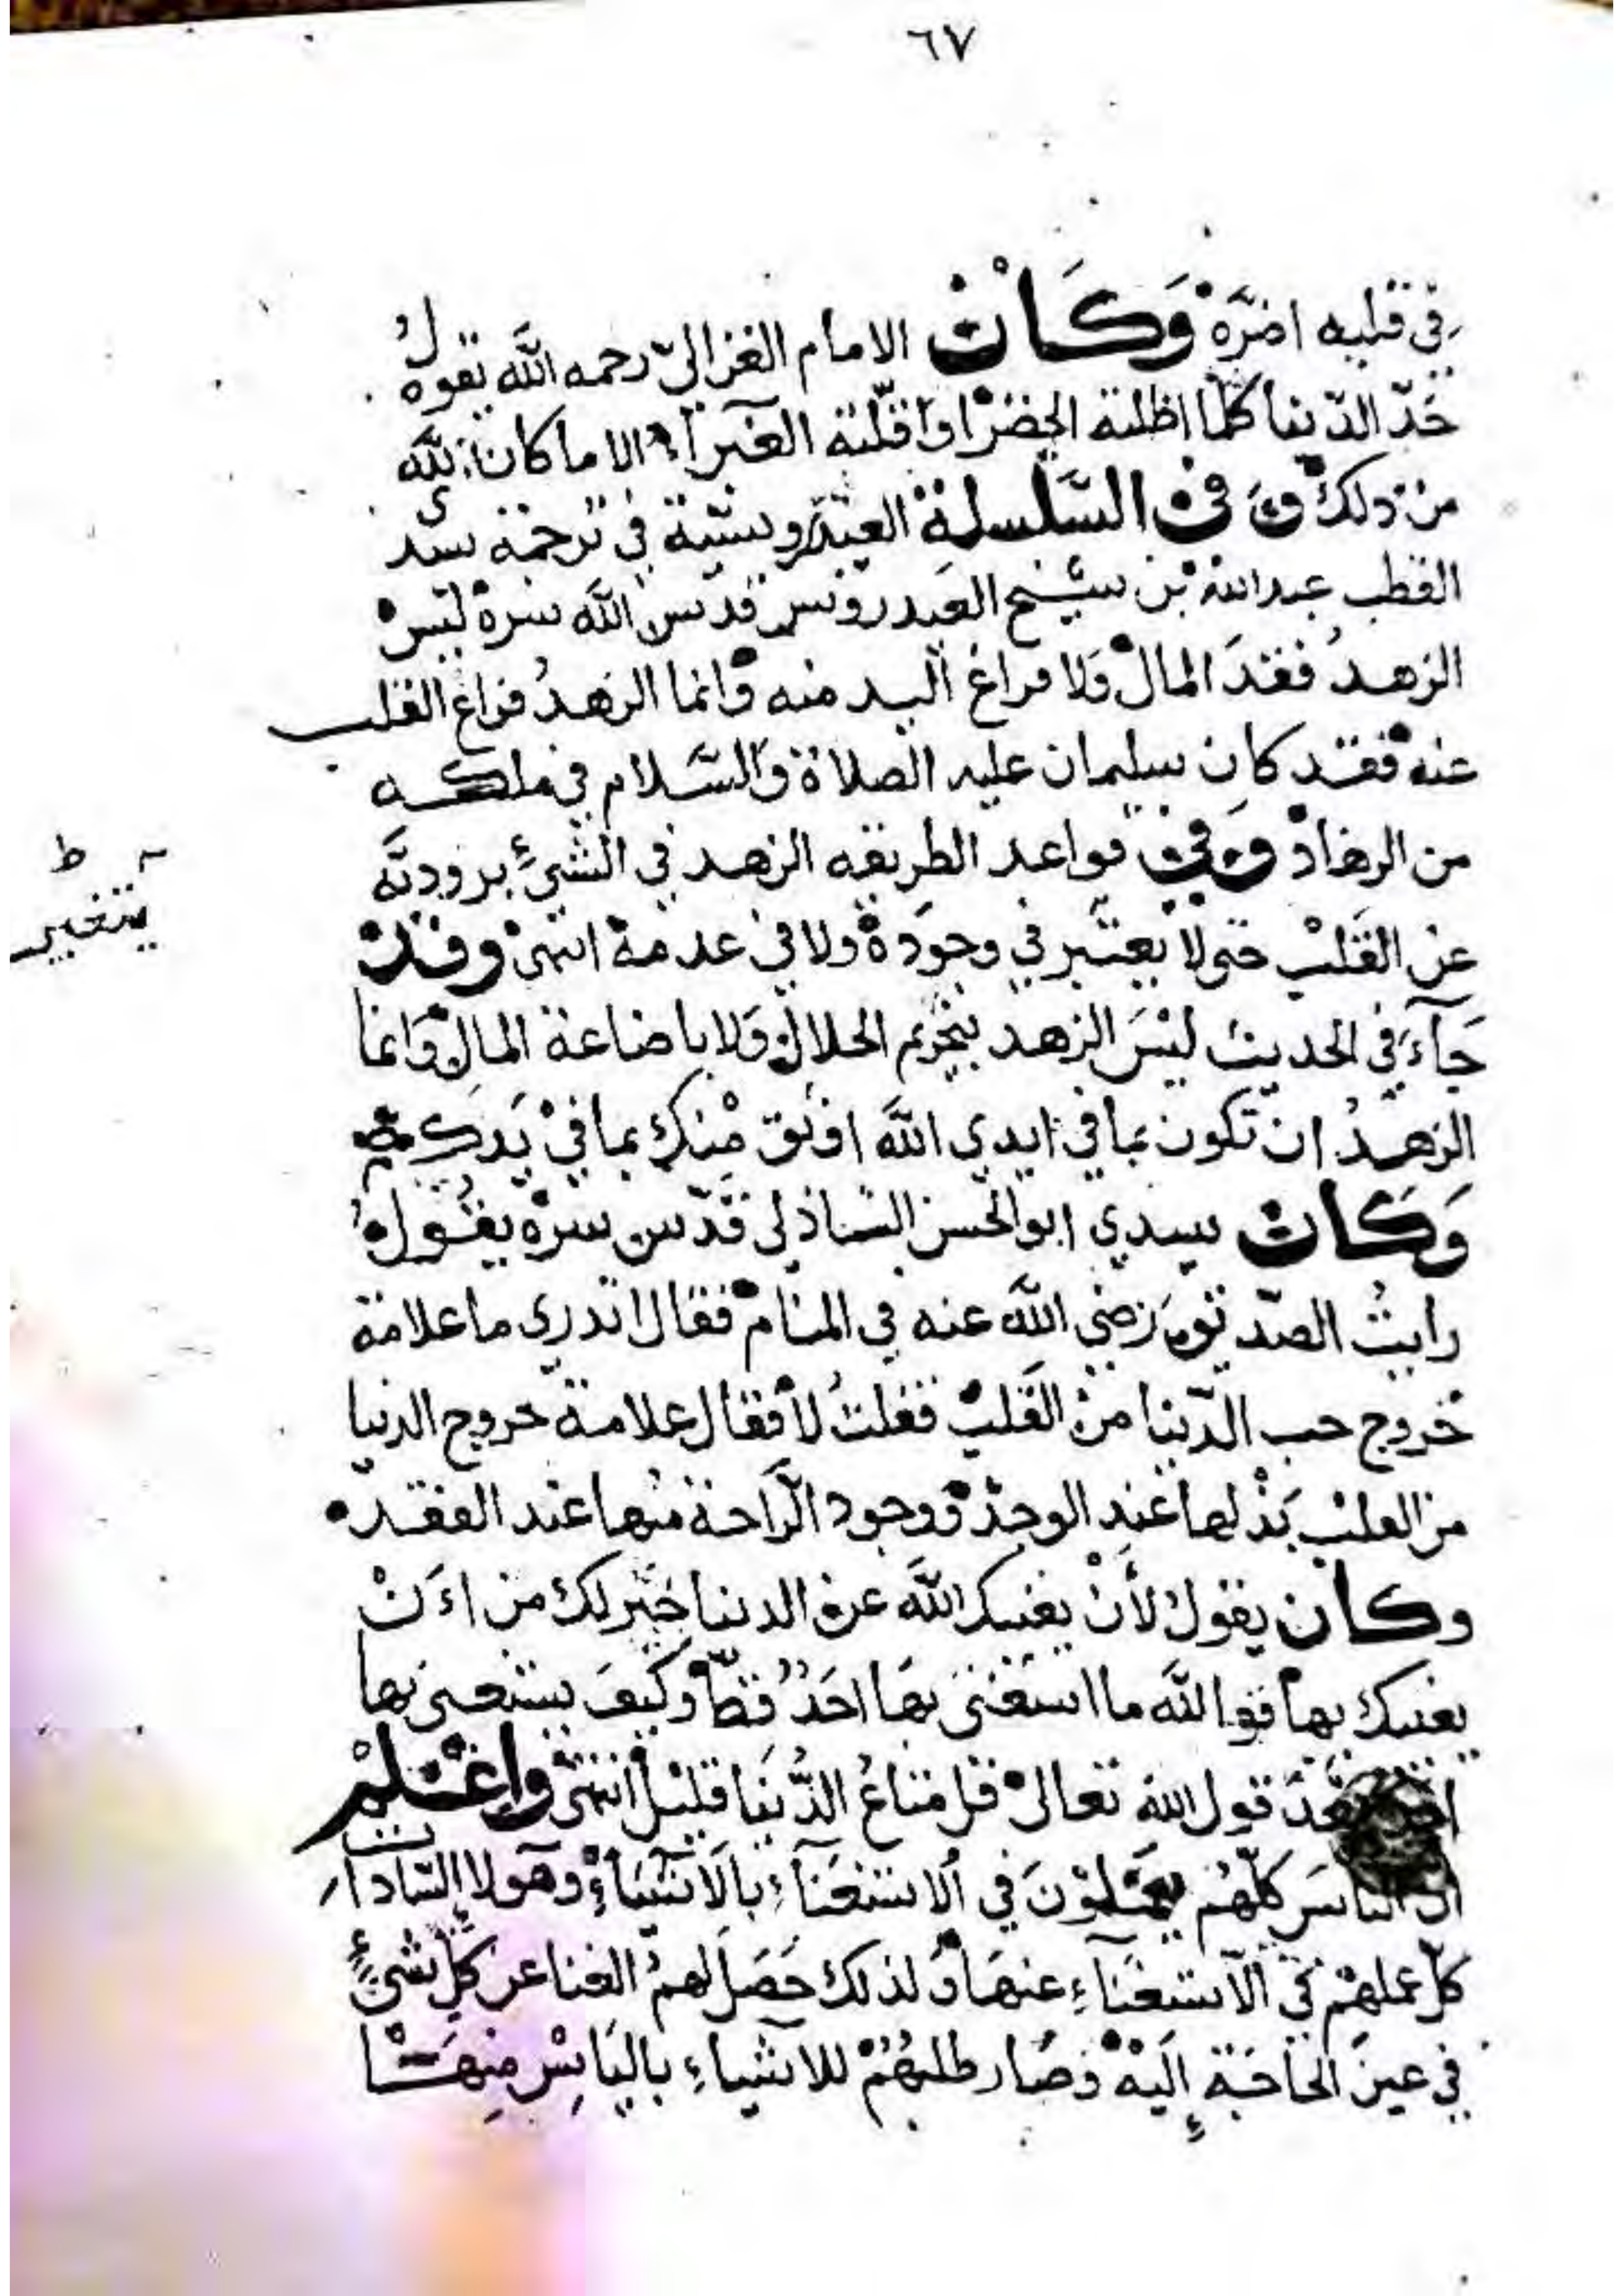 ٦٧
في قلبه اضرّه وَكَانْ الامام الغزالي رحمه الله يقول
حَدّ الدّنيا كلما اظلته الخضرا واقلّته الغبرآ الا ما كان لله
من ذلك وَفي السّلسلة العيدروسيّة في ترجمة سيدى
القطب عبدالله بن شيخ العيدروس قدس الله سره ليس
الزهدُ فقدَ المال وَلا فراغ اليد منه وَانما الزهدُ فراغ القلب
عنه فقد كان سليمان عليه الصلاة وَالسّلام في ملكه
من الزهاد وَفي قواعد الطريقه الزهد في الشيءِ برودته
عن القَلبْ حتى لا يعتبر في وجوده ولا في عدمه انتهىٰ وقدْ
يتغير ط
جَآءَ في الحديث ليْسَ الزهد بتحريم الحلال وَلا باضاعة المال وَانما
الزهدُ ان تكون بما في ايدي اللهَ اوثق مْنك بما في يَدك
وَكَانْ سيدي ابو الحسن الشاذلى قدّس سرّه يقول
رايتُ الصّديق رَضي الله عنه في المنام فقال اتدرى ما علامة
خروج حب الدّنيا منْ القَلب فقلتُ لا فقال علامة خروج الدنيا
من القلبْ بَذْلها عند الوجدْ وَوجود الرّاحة منها عند الفقد
وكان يقول لأنْ يغنيك اللهَ عن الدنيا خَيْر لك من اَنْ
يغنيك بها فوالله ما استَغنى بهَا احَدٌ قط وَكيفَ يستغنى بها
بعْدَ قول الله تعالىٰ قل متاعُ الدُّنيَا قليْل انتهىٰ وَاعْلمْ
ان الناسَ كلّهُم يعمَلوْنَ في الاستغنآءِ بالَاشيَاءِ وهَولاءِ السّادات
كلّ عملهمْ في الآستغنَآءِ عنهَا وَلذلك حَصَل لهمُ الغنا عن كلِّ شيءٍ
في عينَ الحَاجَة إليَه وَصَار طلبهُمْ للاشياءِ باليَاسْ مِنهَا